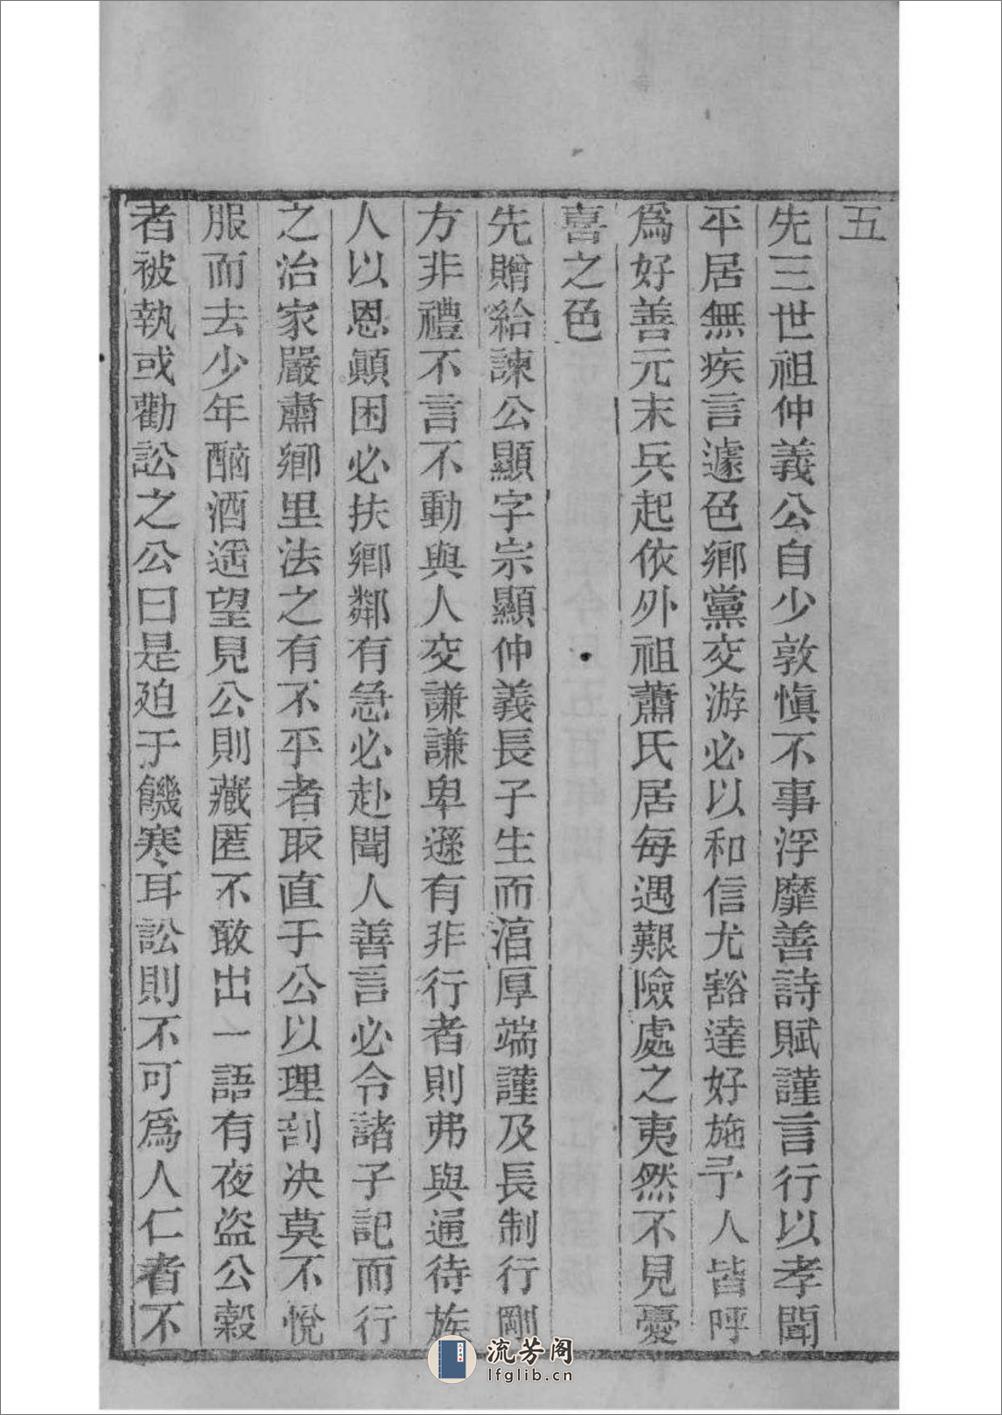 五
先三世祖仲義公自少敦愼不事浮靡善詩賦謹言行以孝聞
平居無疾言遽色鄉黨交游必以和信尤豁達好施予人皆呼
爲好善元末兵起依外祖蕭氏居每遇艱險處之夷然不見憂
喜之色
先贈給諫公顯字宗顯仲義長子生而渾厚端謹及長制行剛
方非禮不言不動與人交謙謙卑遜有非行者則弗與通待族
人以恩顛困必扶鄉鄰有急必赴聞人善言必令諸子記而行
之治家嚴肅鄉里法之有不平者取直于公以理剖决莫不悅
服而去少年酗酒遥望見公則藏匿不敢出一語有夜盜公穀
者被執或勸訟之公曰是廹于饑寒耳訟則不可爲人仁者不
流芳阁
lfglib.cn